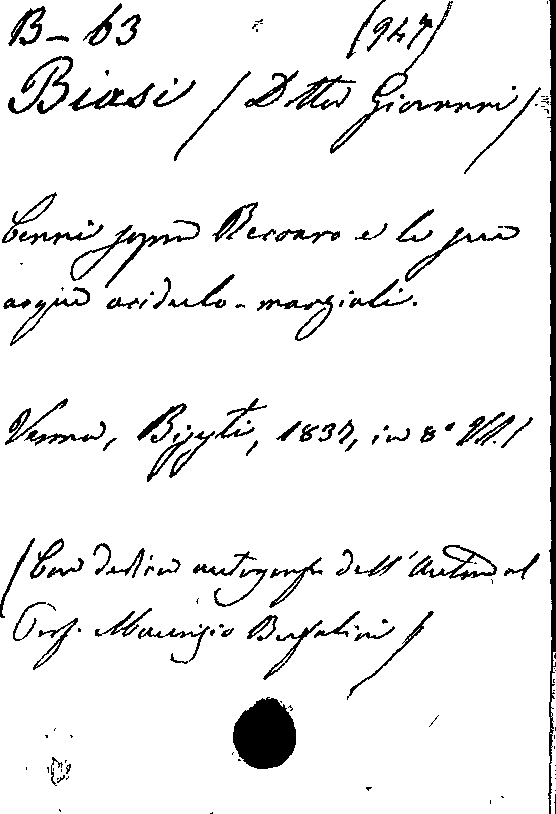 B - 63 (947)
Biasi (Dottor Giovanni)
Cenni sopra Recoaro e le sue
acque acidulo-marziali.
Verona, Bisesti, 1837, in 8°
(Con dedica autografa dell'Autore al
Prof. Maurizio Bufalini)